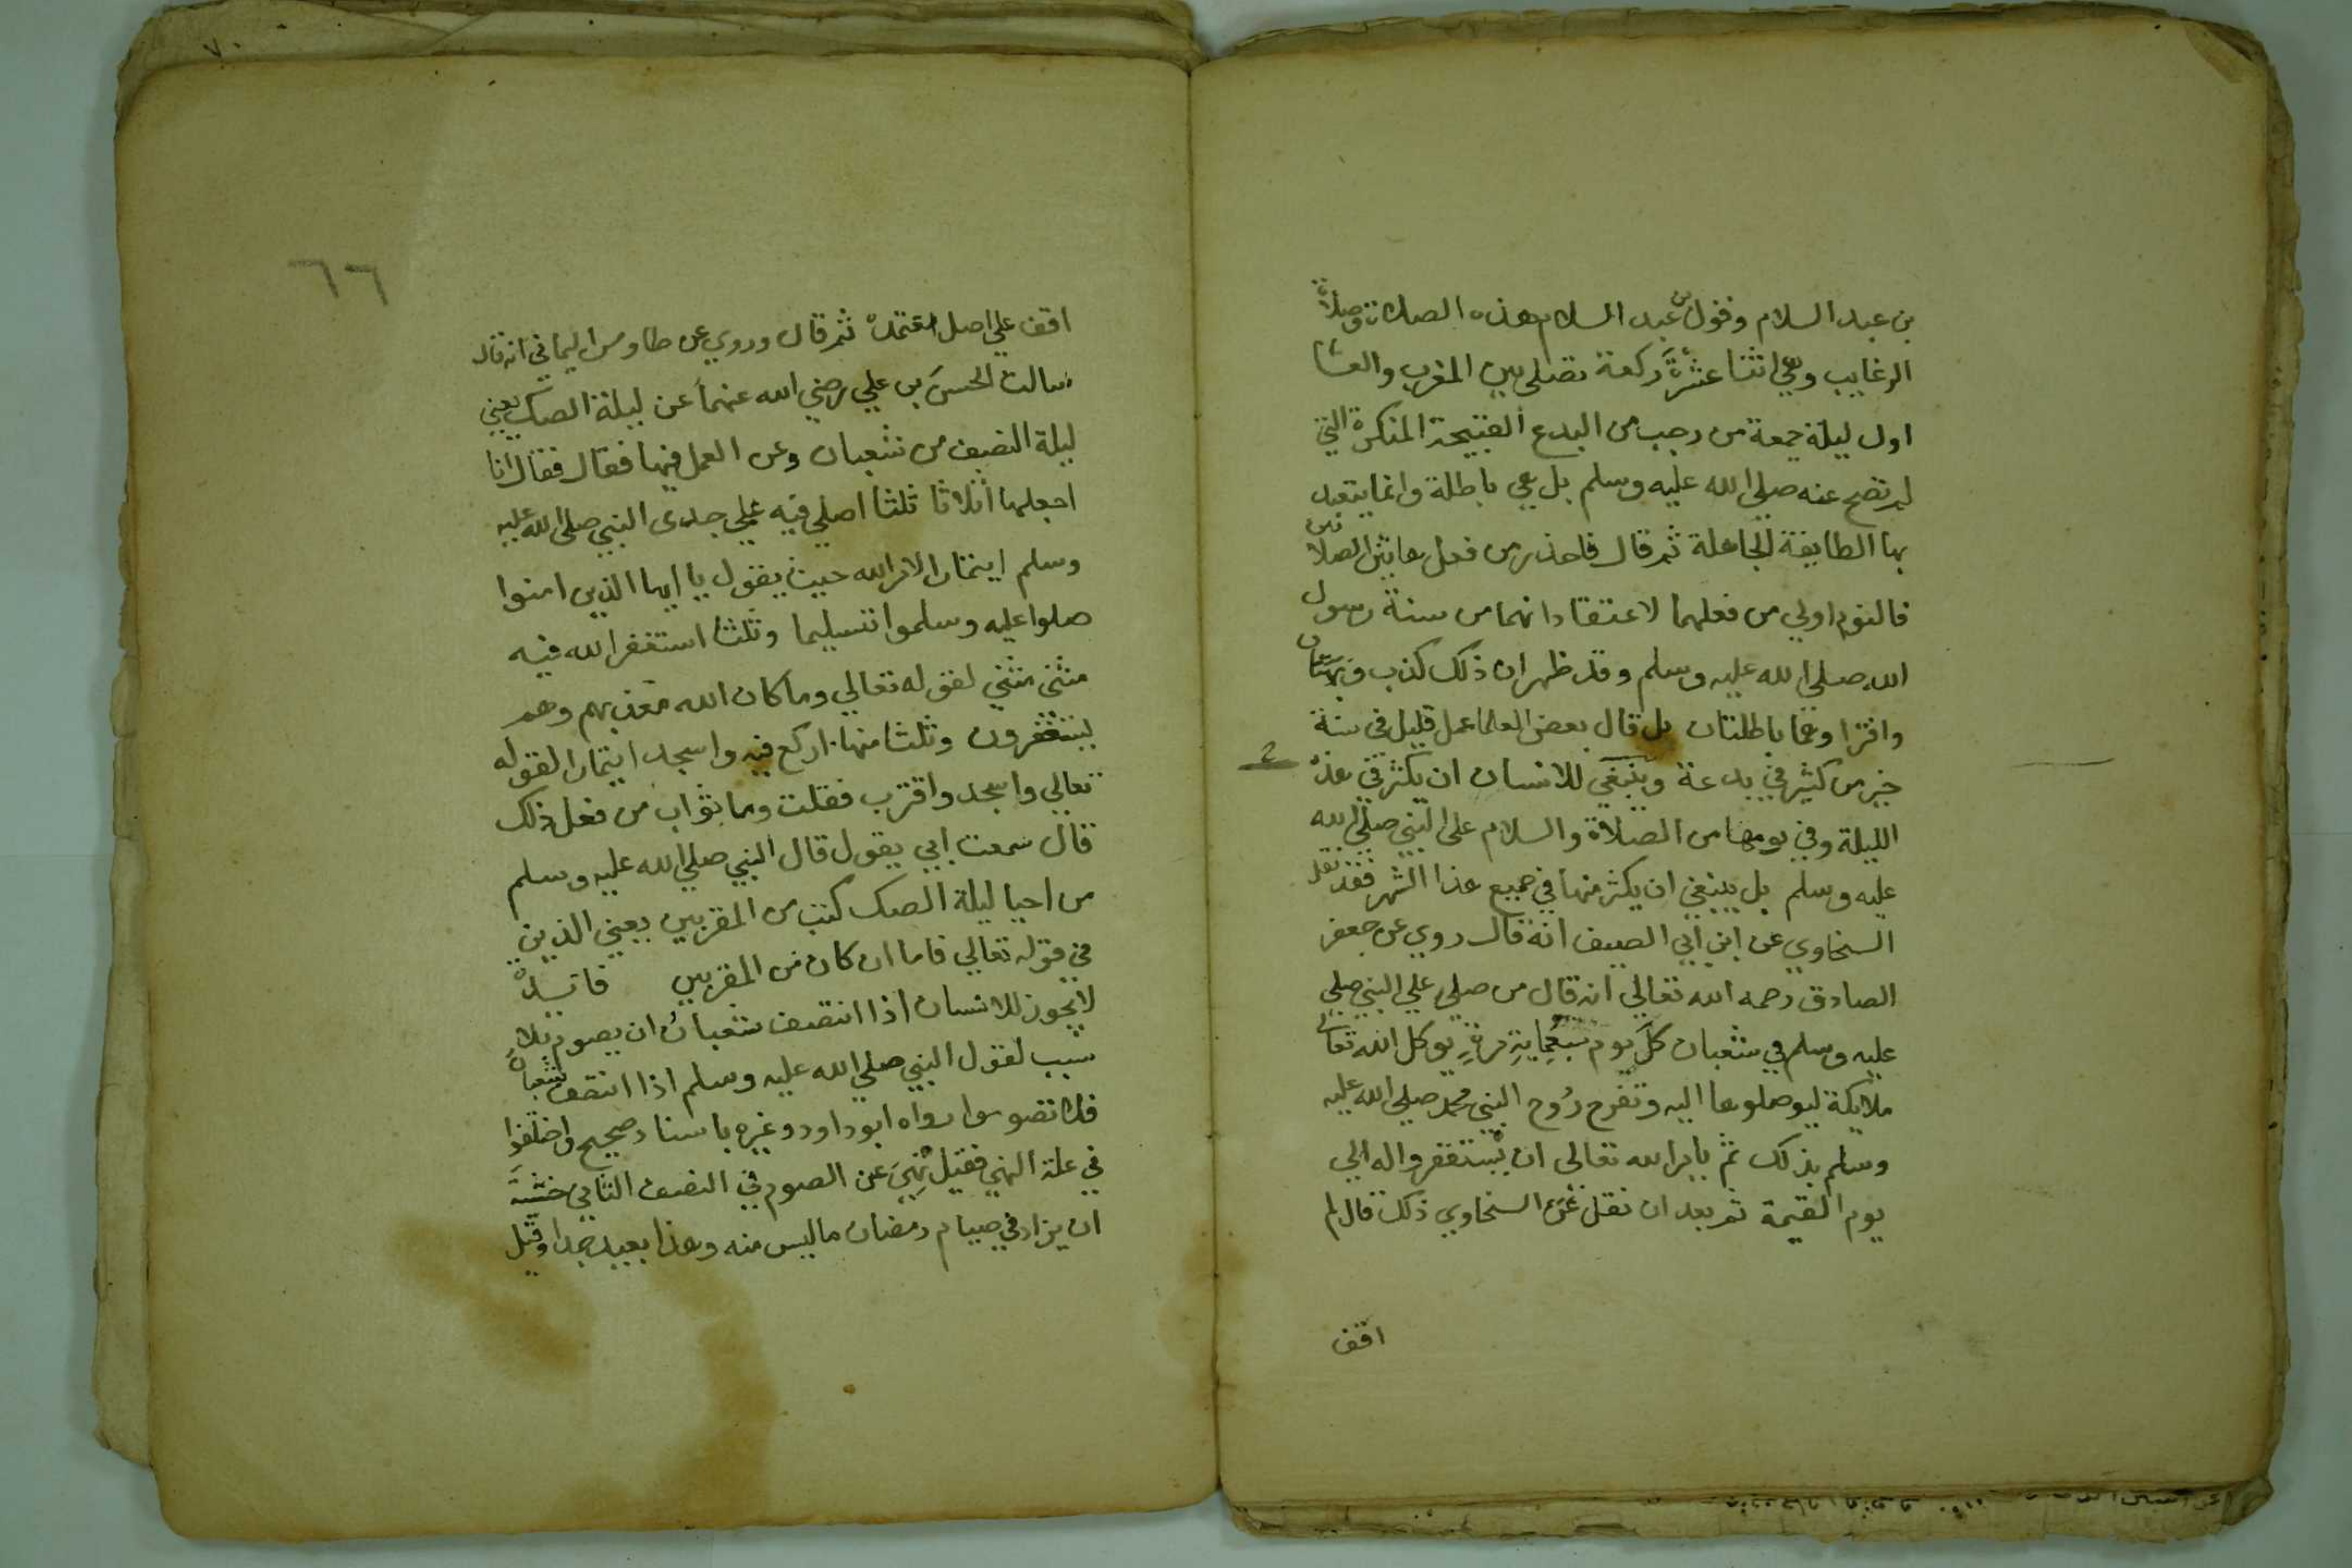 بن عبد السلام وقول بن عبد السلام هذه الصلاة وصلاة
الرغايب وهي اثنتا عشرة ركعة تصلى بين المغرب والعشا
اول ليلة جمعة من رجب من البدع القبيحة المنكرة التي
لم تصح عنه صلي الله عليه وسلم بل هي باطلة وانما يتعبد
بها الطايفة الجاهلة ثم قال فاحذر من فعل هاتين الصلاتين
فالنوم اولي من فعلهما لاعتقاد انهما من سنة رسول
الله صلي الله عليه وسلم وقد ظهر ان ذلك كذب وبهتان
وافترا وهما باطلتان بل قال بعض العلما عمل قليل في سنة
خير من كثير في بدعة وينبغي للانسان ان يكثر في هذه
الليلة وفي يومها من الصلاة والسلام على النبي صلي الله
عليه وسلم بل ينبغي ان يكثر منها في جميع هذا الشهر فقد نقل
السخاوي عن ابن ابي الصيف انه قال روي عن جعفر
الصادق رحمه الله تعالي انه قال من صلي علي النبي صلي
عليه وسلم في شعبان كل يوم سبعماية مرة يوكل الله تعالى
ملايكة ليوصلوها اليه وتفرح روح النبي محمد صلي الله عليه
وسلم بذلك ثم يامر الله تعالى ان يستغفروا له الي
يوم القيمة ثم بعد ان نقل عن السخاوي ذلك قال لم
اقف
٦٦
اقف علي اصل اعتمده ثم قال وروي عن طاوس اليماني انه قال
سالت الحسن بن علي رضي الله عنهما عن ليلة الصك يعني
ليلة النصف من شعبان وعن العمل فيها فقال فقال انا
اجعلها اثلاثا ثلثا اصلي فيه علي جدى النبي صلى الله عليه
وسلم ايتمار الامر الله حيث يقول يا ايها الذين امنوا
صلوا عليه وسلموا تسليما وثلثا استغفر الله فيه
مثنى مثني لقوله تعالي وما كان الله معذبهم وهم
يستغفرون وثلثا منها اركع فيه واسجد ايتمارا لقوله
تعالي واسجد واقترب فقلت وما ثواب من فعل ذلك
قال سمعت ابي يقول قال النبي صلي الله عليه وسلم
من احيا ليلة الصك كتب من المقربين يعني الذين
في قوله تعالي فاما ان كان من المقربين فايدة
لا يجوز للانسان اذا انتصف شعبان ان يصوم بلا
سبب لقول النبي صلي الله عليه وسلم اذا انتصف شعبان
فلا تصوموا رواه ابو داود وغيره باسناد صحيح واختلفوا
في علة النهي فقيل نهي عن الصوم في النصف الثاني خشية
ان يزاد في صيام رمضان ما ليس منه وهذا بعيد جدا وقيل